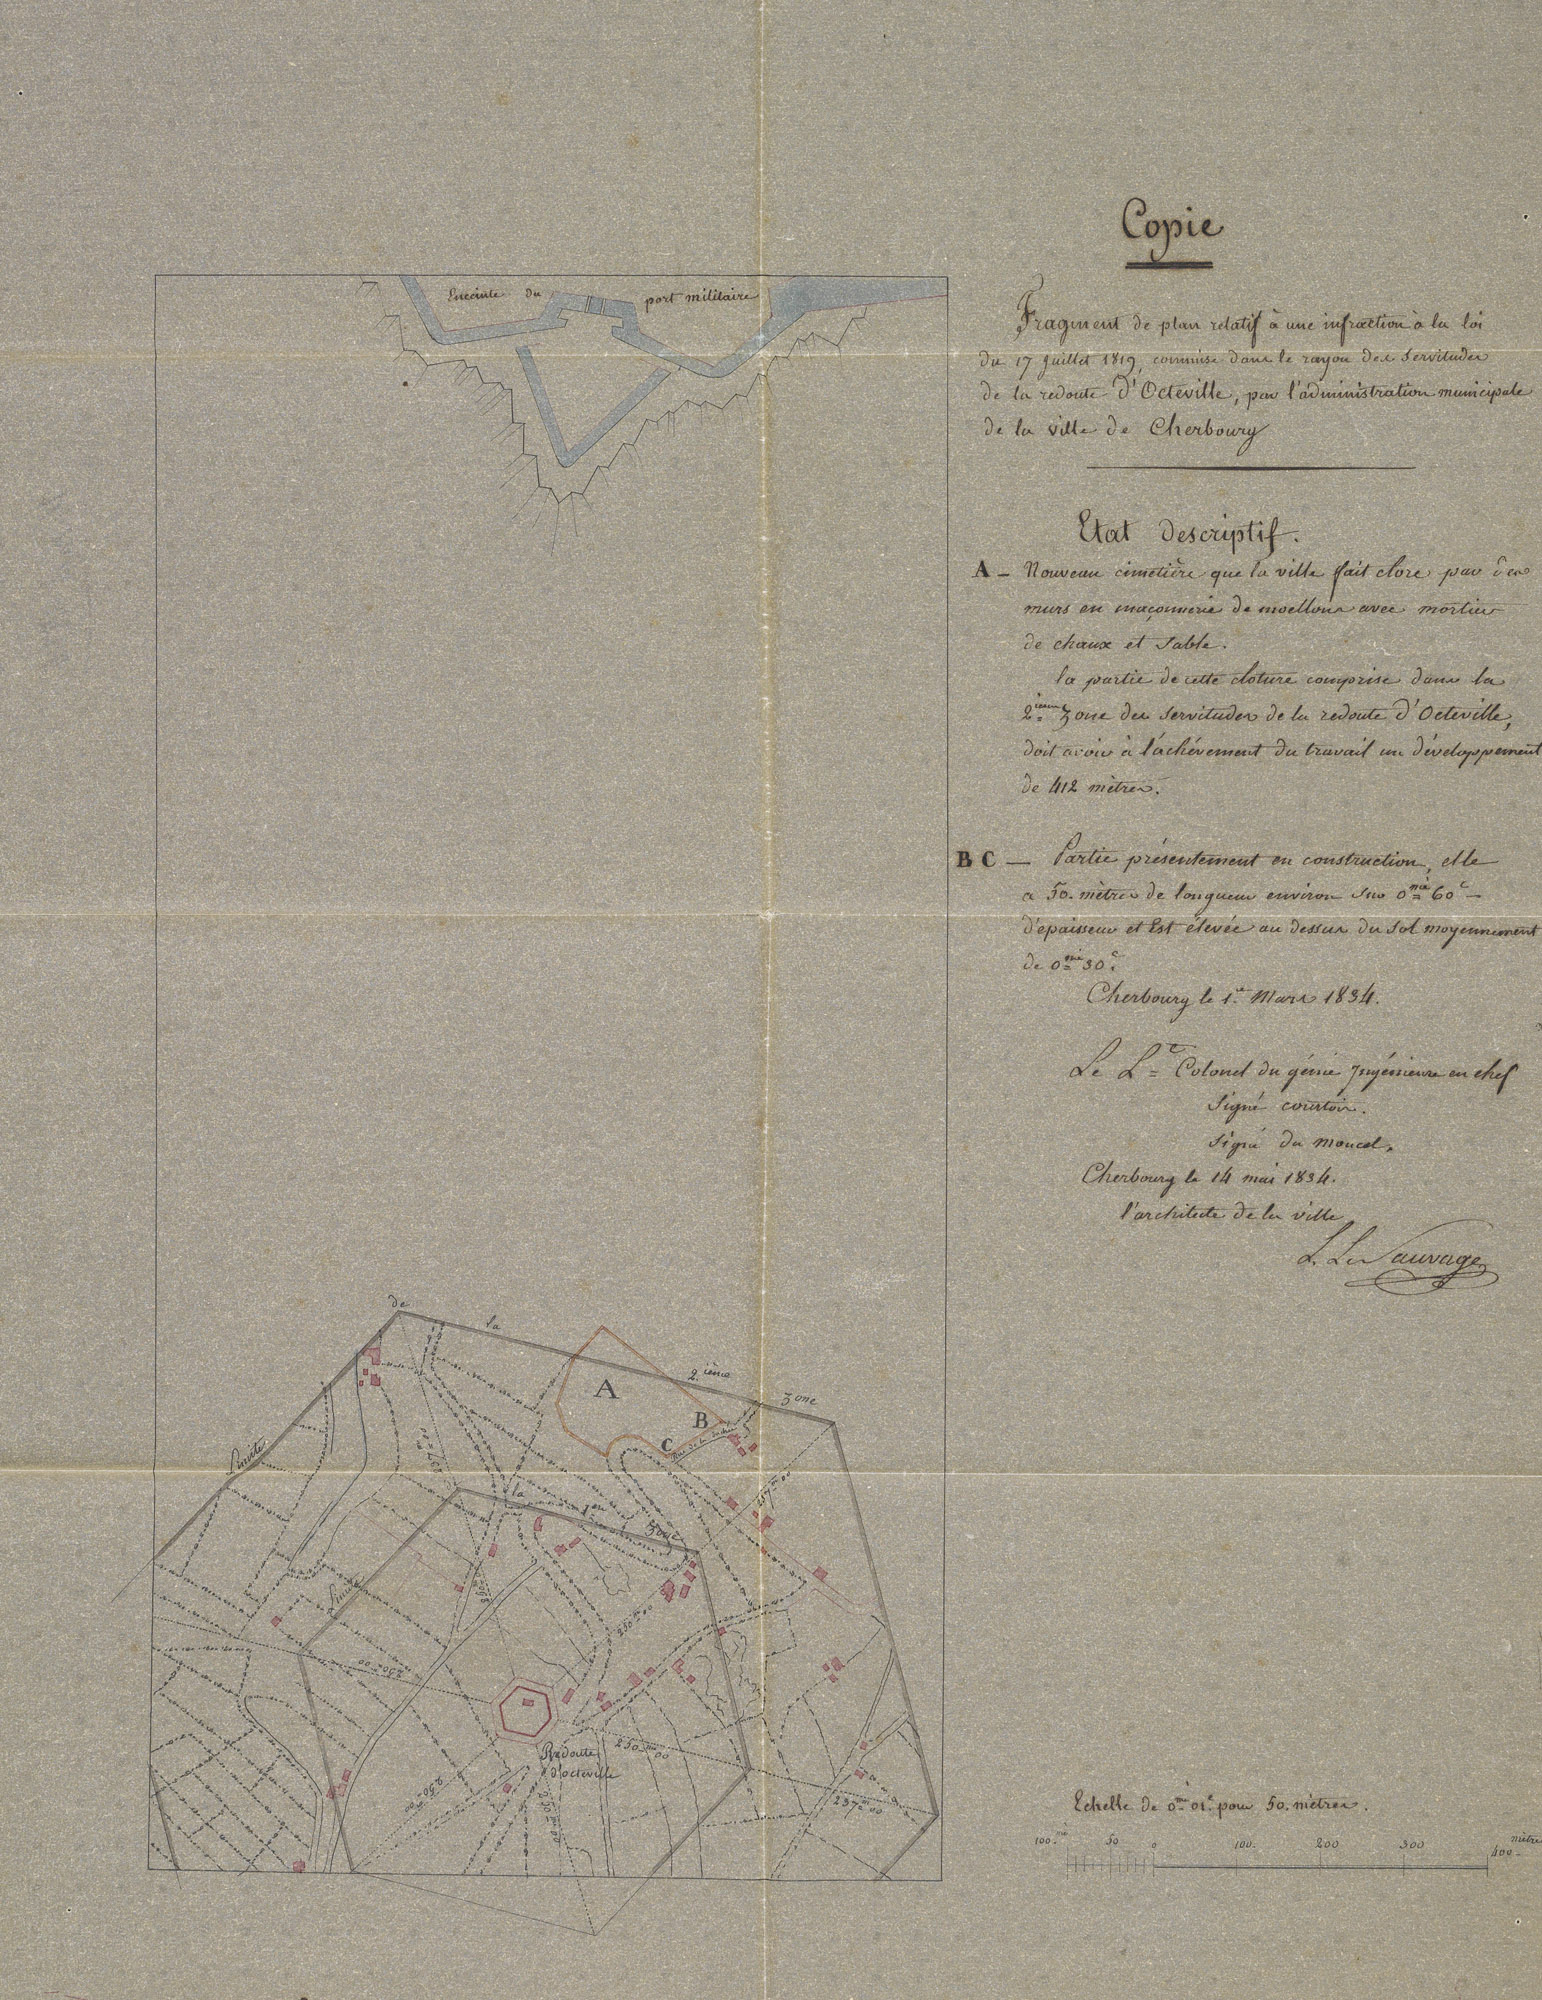 Copie
Fragment de plan relatif à une infraction à la loi
du 17 Juillet 1819, commise dans le rayon des servitudes
de la redoute d'Octeville, par l'administration municipale
de la ville de Cherbourg
Etat descriptif.
A - Nouveau cimetière que la ville fait clore par des
murs en maçonnerie de moellons avec mortier
de chaux et sable.
la partie de cette cloture comprise dans la
2ième zone des servitudes de la redoute d'Octeville,
doit avoir à l'achévement du travail un développement
de 412 mètres.
B C — Partie présentement en construction, elle
a 50. mètres de longueur environ sur 0mè 60c
d'épaisseur et Est élevée au dessus du sol moyennement
de 0mè 30c.
Cherbourg le 1er Mars 1834.
Le Lt Colonel du génie Ingénieur en chef
Signé courtois.
signé du moncel.
Cherbourg le 14 mai 1834.
l'architecte de la ville
L. Le Sauvage
Enceinte du port militaire
Limite de la 2ième zone
A
B
C
Rue de la
237m00
Limite de la 1ere zone
250m00
250m00
250m00
250m00
250m00
250m00
237m00
Redoute
d'octeville
Echelle de 0mè 01c pour 50. mètres.
100.mè 50 0 100. 200 300 400 mètres